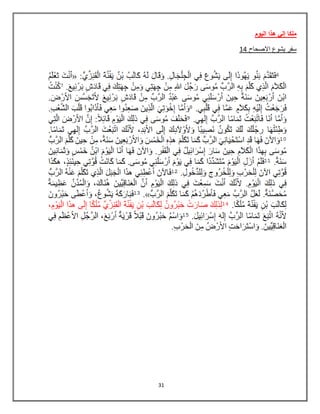 ملكا إلى هذا اليوم
سفر يشوع الاصحاح 14
٦فَتَقَدَّمَ بَنُو يَهُوذَا إِلَى يَشُوعَ فِي الْجِلْجَالِ. وَقَالَ لَهُ كَالَبُ بْنُ يَفُنَّةَ الْقِنِزِّيُّ: «أَنْتَ تَعْلَمُ
الْكَلاَمَ الَّذِي كَلَّمَ بِهِ الرَّبُّ مُوسَى رَجُلَ اللهِ مِنْ جِهَتِي وَمِنْ جِهَتِكَ فِي قَادَشِ بَرْنِيعَ. ٧كُنْتُ
ابْنَ أَرْبَعِينَ سَنَةً حِينَ أَرْسَلَنِي مُوسَى عَبْدُ الرَّبِّ مِنْ قَادَشِ بَرْنِيعَ لأَتَجَسَّسَ الأَرْضَ.
فَرَجَعْتُ إِلَيْهِ بِكَلاَمٍ عَمَّا فِي قَلْبِي. ٨وَأَمَّا إِخْوَتِيَ الَّذِينَ صَعِدُوا مَعِي فَأَذَابُوا قَلْبَ الشَّعْبِ.
وَأَمَّا أَنَا فَاتَّبَعْتُ تَمَامًا الرَّبَّ إِلهِي. ٩فَحَلَفَ مُوسَى فِي ذلِكَ الْيَوْمِ قَائِلاً: إِنَّ الأَرْضَ الَّتِي
وَطِئَتْهَا رِجْلُكَ لَكَ تَكُونُ نَصِيبًا وَلأَوْلاَدِكَ إِلَى الأَبَدِ، لأَنَّكَ اتَّبَعْتَ الرَّبَّ إِلهِي تَمَامًا.
١٠وَالآنَ فَهَا قَدِ اسْتَحْيَانِيَ الرَّبُّ كَمَا تَكَلَّمَ هذِهِ الْخَمْسَ وَالأَرْبَعِينَ سَنَةً، مِنْ حِينَ كَلَّمَ الرَّبُّ
مُوسَى بِهذَا الْكَلاَمِ حِينَ سَارَ إِسْرَائِيلُ فِي الْقَفْرِ. وَالآنَ فَهَا أَنَا الْيَوْمَ ابْنُ خَمْسٍ وَثَمَانِينَ
سَنَةً. ١١فَلَمْ أَزَلِ الْيَوْمَ مُتَشَدِّدًا كَمَا فِي يَوْمِ أَرْسَلَنِي مُوسَى. كَمَا كَانَتْ قُوَّتِي حِينَئِذٍ، هكَذَا
قُوَّتِي الآنَ لِلْحَرْبِ وَلِلْخُرُوجِ وَلِلدُّخُولِ. ١٢فَالآنَ أَعْطِنِي هذَا الْجَبَلَ الَّذِي تَكَلَّمَ عَنْهُ الرَّبُّ
فِي ذلِكَ الْيَوْمِ. لأَنَّكَ أَنْتَ سَمِعْتَ فِي ذلِكَ الْيَوْمِ أَنَّ الْعَنَاقِيِّينَ هُنَاكَ، وَالْمُدُنُ عَظِيمَةٌ
مُحَصَّنَةٌ. لَعَلَّ الرَّبَّ مَعِي فَأَطْرُدَهُمْ كَمَا تَكَلَّمَ الرَّبُّ». ١٣فَبَارَكَهُ يَشُوعُ، وَأَعْطَى حَبْرُونَ
لِكَالَبَ بْنِ يَفُنَّةَ مُلْكًا. ١٤لِذلِكَ صَارَتْ حَبْرُونُ لِكَالَبَ بْنِ يَفُنَّةَ الْقِنِزِّيِّ مُلْكًا إِلَى هذَا الْيَوْمِ،
لأَنَّهُ اتَّبَعَ تَمَامًا الرَّبَّ إِلهَ إِسْرَائِيلَ. ١٥وَاسْمُ حَبْرُونَ قَبْلاً قَرْيَةُ أَرْبَعَ، الرَّجُلِ الأَعْظَمِ فِي
الْعَنَاقِيِّينَ. وَاسْتَرَاحَتِ الأَرْضُ مِنَ الْحَرْبِ.
31